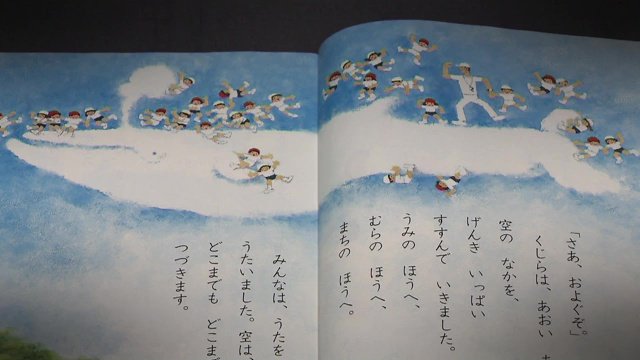 「さあ、およぐぞ。」
くじらは、あおい
空の なかを、
げんき いっぱい
すすんで いきました。
うみの ほうへ、
むらの ほうへ、
まちの ほうへ。
みんなは、うたを
うたいました。空は、
どこまでも どこま
つづきます。